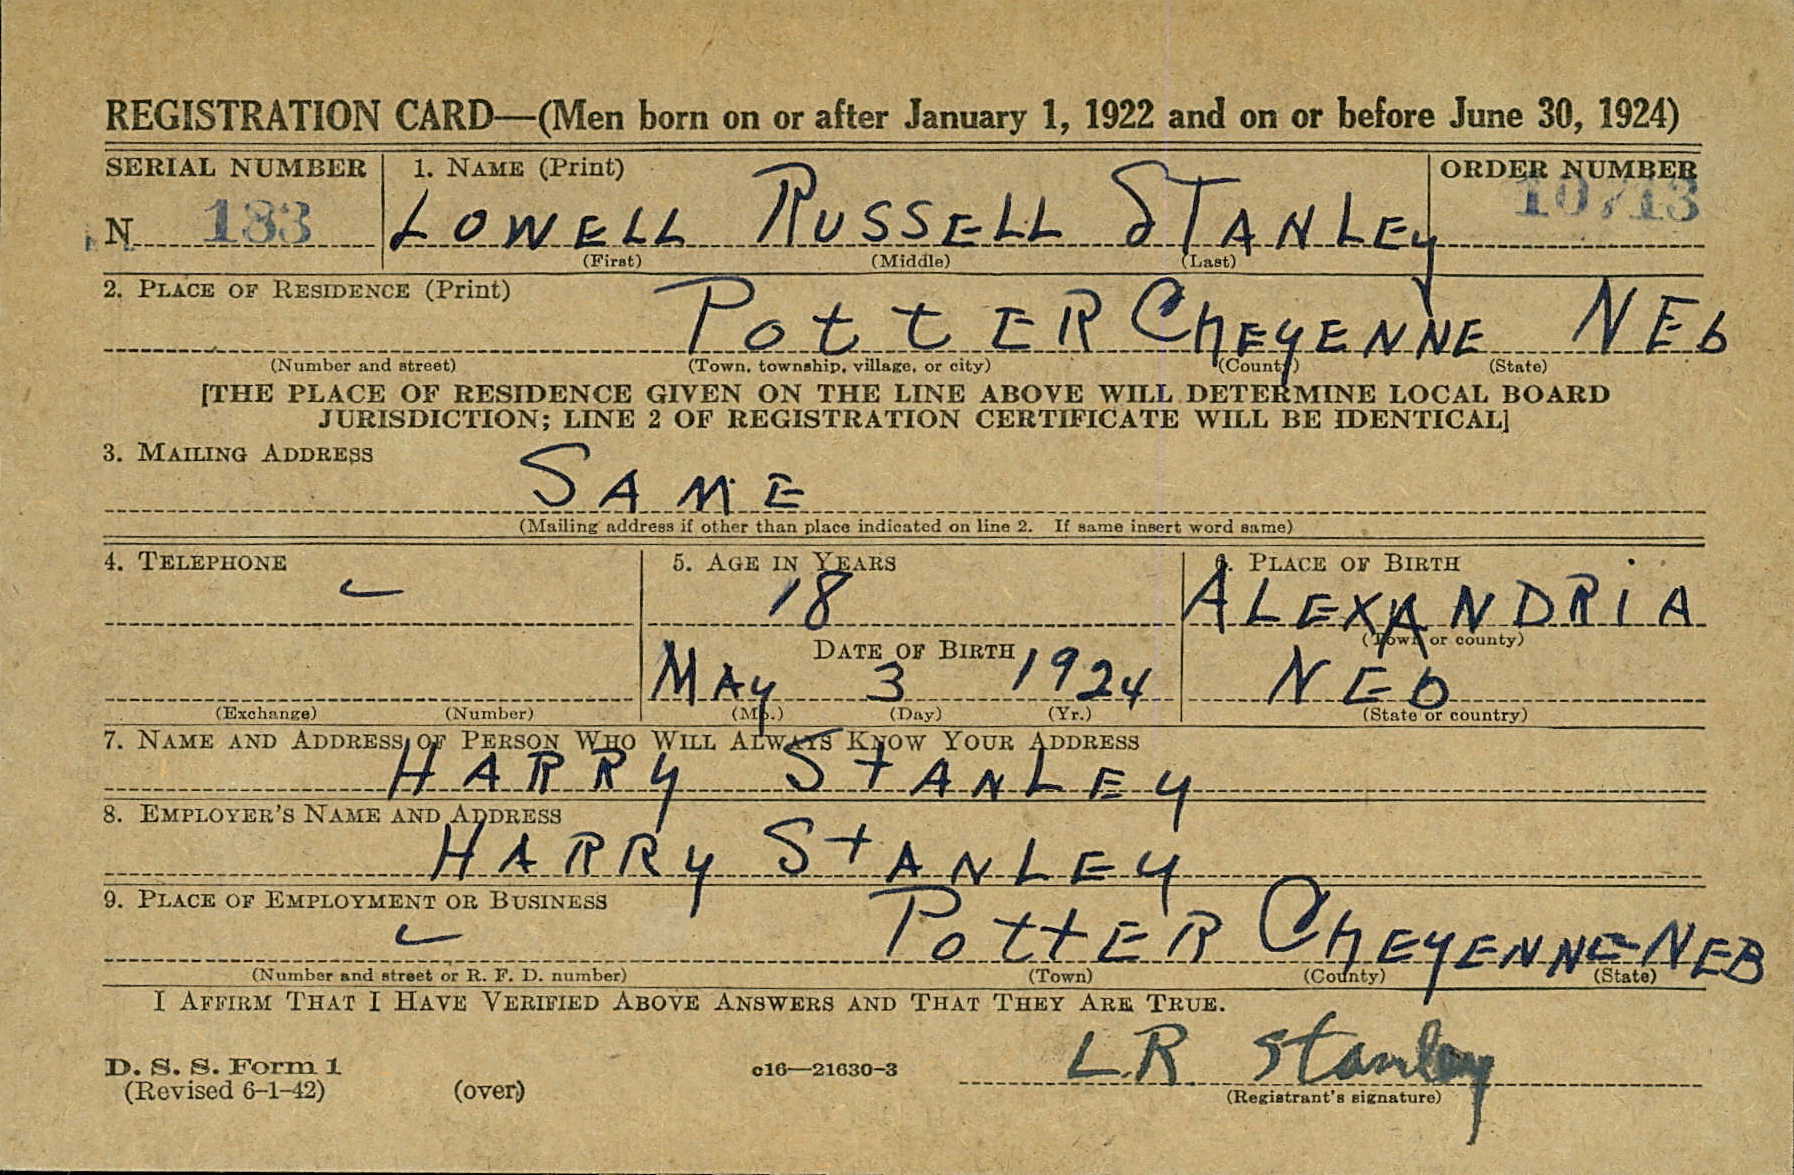 REGISTRATION CARD—(Men born on or after January 1, 1922 and on or before June 30, 1924)
SERIAL NUMBER 1. NAME (Print) ORDER NUMBER
N 183 LOWELL RUSSELL STANLEy
(First) (Middle) (Last)
2. PLACE OF RESIDENCE (Print)
PottER CHEyENNE NEb
(Number and street) (Town, township, village, or city) (County) (State)
[THE PLACE OF RESIDENCE GIVEN ON THE LINE ABOVE WILL DETERMINE LOCAL BOARD
JURISDICTION; LINE 2 OF REGISTRATION CERTIFICATE WILL BE IDENTICAL]
3. MAILING ADDRESS
SAME
(Mailing address if other than place indicated on line 2. If same insert word same)
4. TELEPHONE 5. AGE IN YEARS 6. PLACE OF BIRTH
18 ALEXANDRIA
(Town or county)
DATE OF BIRTH
MAy 3 1924 NEb
(Exchange) (Number) (Mo.) (Day) (Yr.) (State or country)
7. NAME AND ADDRESS OF PERSON WHO WILL ALWAYS KNOW YOUR ADDRESS
HARRy StANLEy
8. EMPLOYER'S NAME AND ADDRESS
HARRy StANLEy
9. PLACE OF EMPLOYMENT OR BUSINESS
PottER CHEyENNE NEB
(Number and street or R. F. D. number) (Town) (County) (State)
I AFFIRM THAT I HAVE VERIFIED ABOVE ANSWERS AND THAT THEY ARE TRUE.
D. S. S. Form 1 c16—21630-3 L.R. Stanley
(Revised 6-1-42) (over) (Registrant's signature)